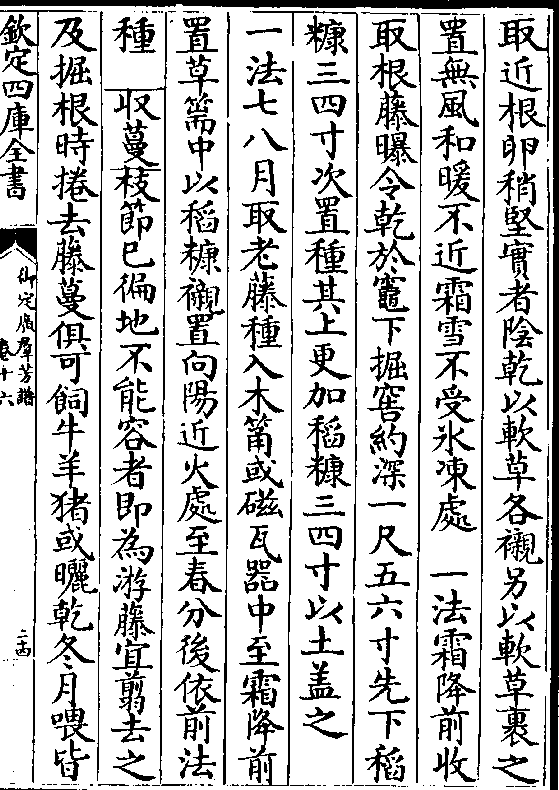 取近根卵稍堅實者陰乾以軟草各襯另以軟草裹之
置無風和暖不近霜雪不受氷凍處 一法霜降前收
取根藤曝令乾於竈下掘窖約深一尺五六寸先下稻
糠三四寸次置種其上更加稻糠三四寸以土盖之
一法七八月取老藤種入木筩或磁瓦器中至霜降前
置草篅中以稻糠襯置向陽近火處至春分後依前法
種 收蔓枝節已徧地不能容者即為游藤宜翦去之
及掘根時捲去藤蔓俱可飼牛羊猪或曬乾冬月喂皆
欽定四庫全書
御定廣羣芳譜
卷十六
二十四